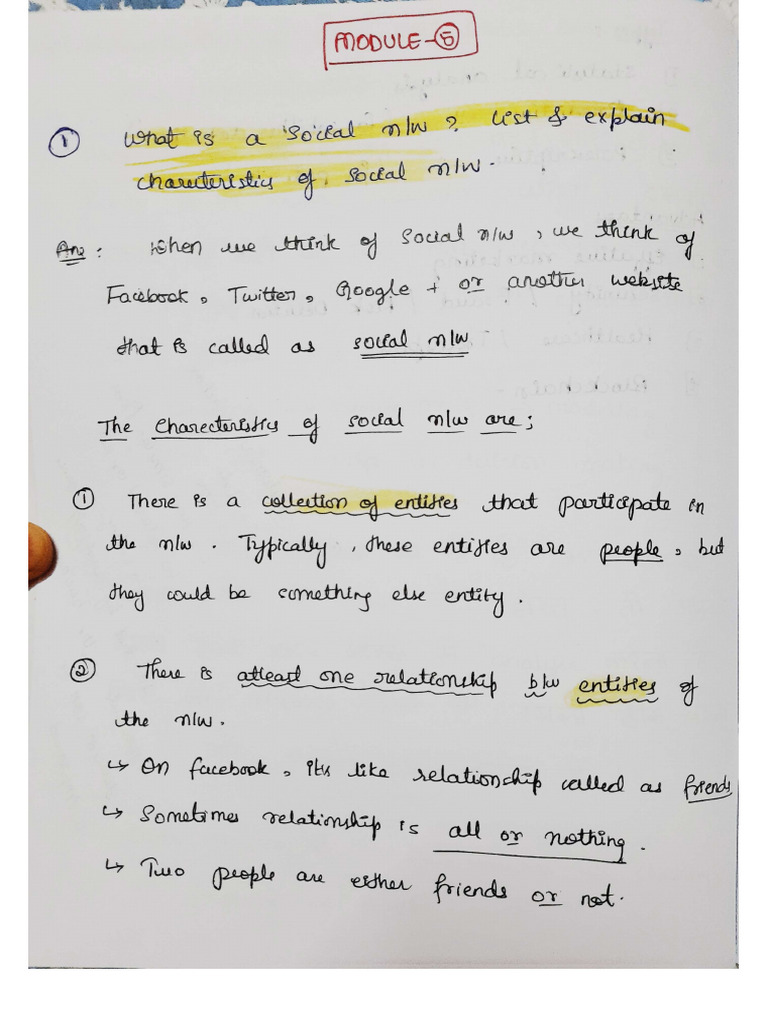 MODULE-5
① What is a social n/w? List & explain
charecteristics of social n/w.
Ans: When we think of social n/w, we think of
Facebook, Twitter, Google + or another website
that is called as social n/w
The Charecteristics of social n/w are;
① There is a collection of entities that participate in
the n/w. Typically, these entities are people, but
they could be something else entity.
② There is atleast one relationship b/w entities of
the n/w.
↳ On facebook, its like relationship called as friends
↳ Sometimes relationship is all or nothing.
↳ Two people are either friends or not.